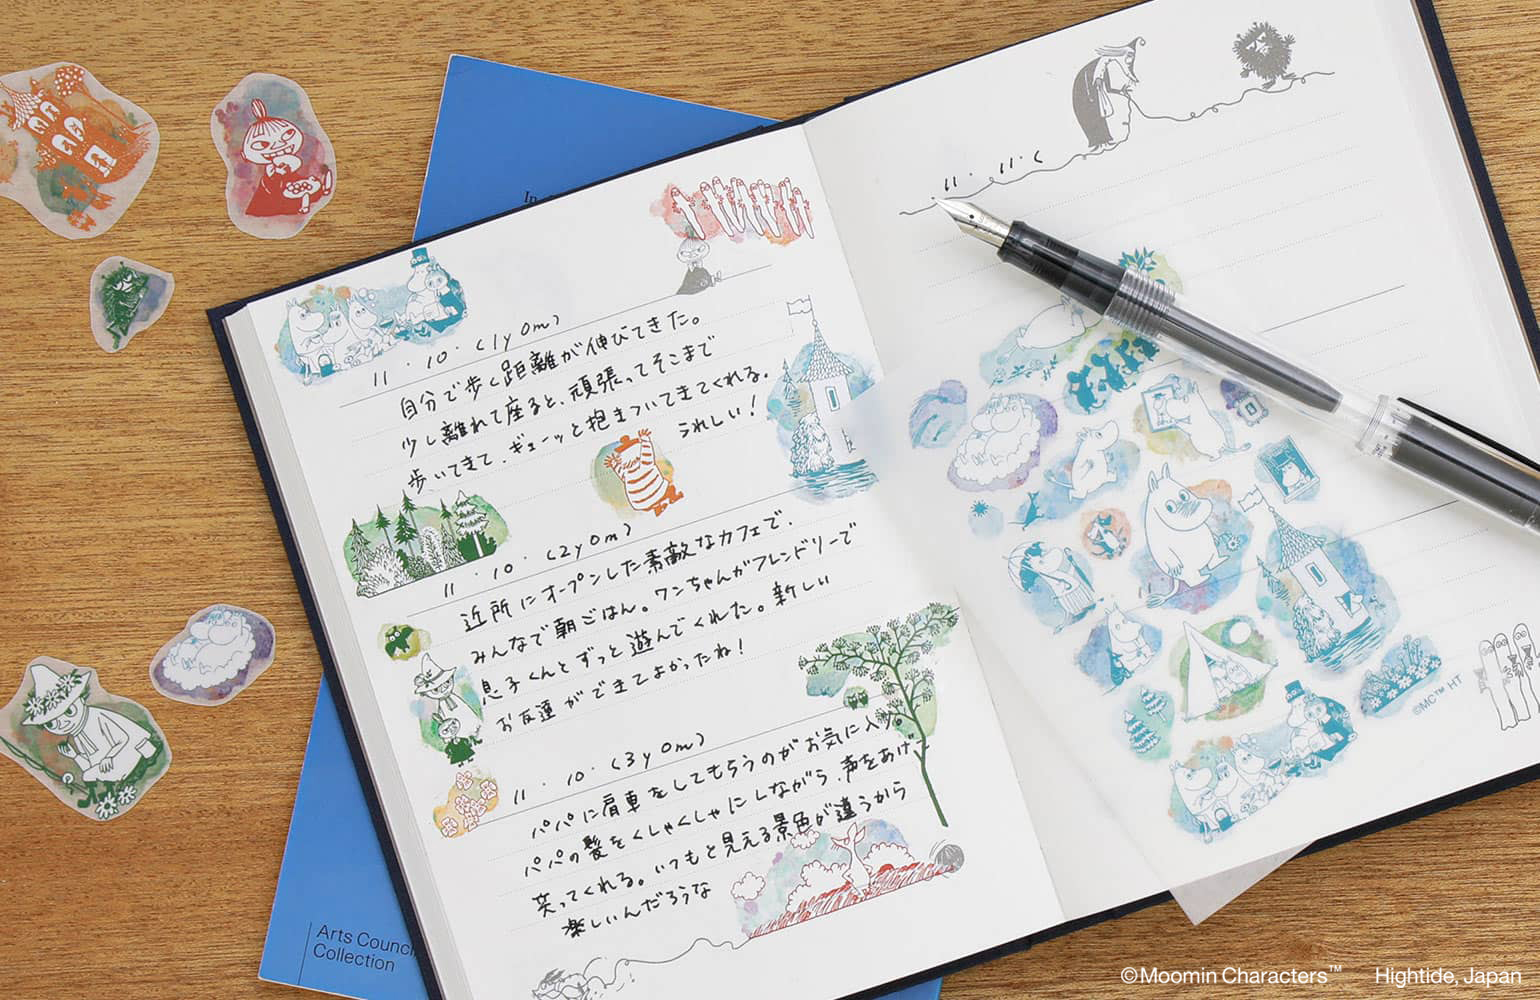 11・10・(1y0m)
自分で歩く距離が伸びてきた。
少し離れて座ると、頑張ってそこまで
歩いてきて、ギューッと抱きついてきてくれる。
うれしい!
11・10・(2y0m)
近所にオープンした素敵なカフェで、
みんなで朝ごはん。ワンちゃんがフレンドリーで
息子くんとずっと遊んでくれた。新しい
お友達ができてよかったね!
11・10・(3y0m)
パパに肩車をしてもらうのがお気に入り。
パパの髪をくしゃくしゃにしながら、声をあげて
笑ってくれる。いつもと見える景色が違うから
楽しいんだろうな
11・11・(
©MC™ HT
In
Arts Counc
Collection
©Moomin Characters™ Hightide, Japan